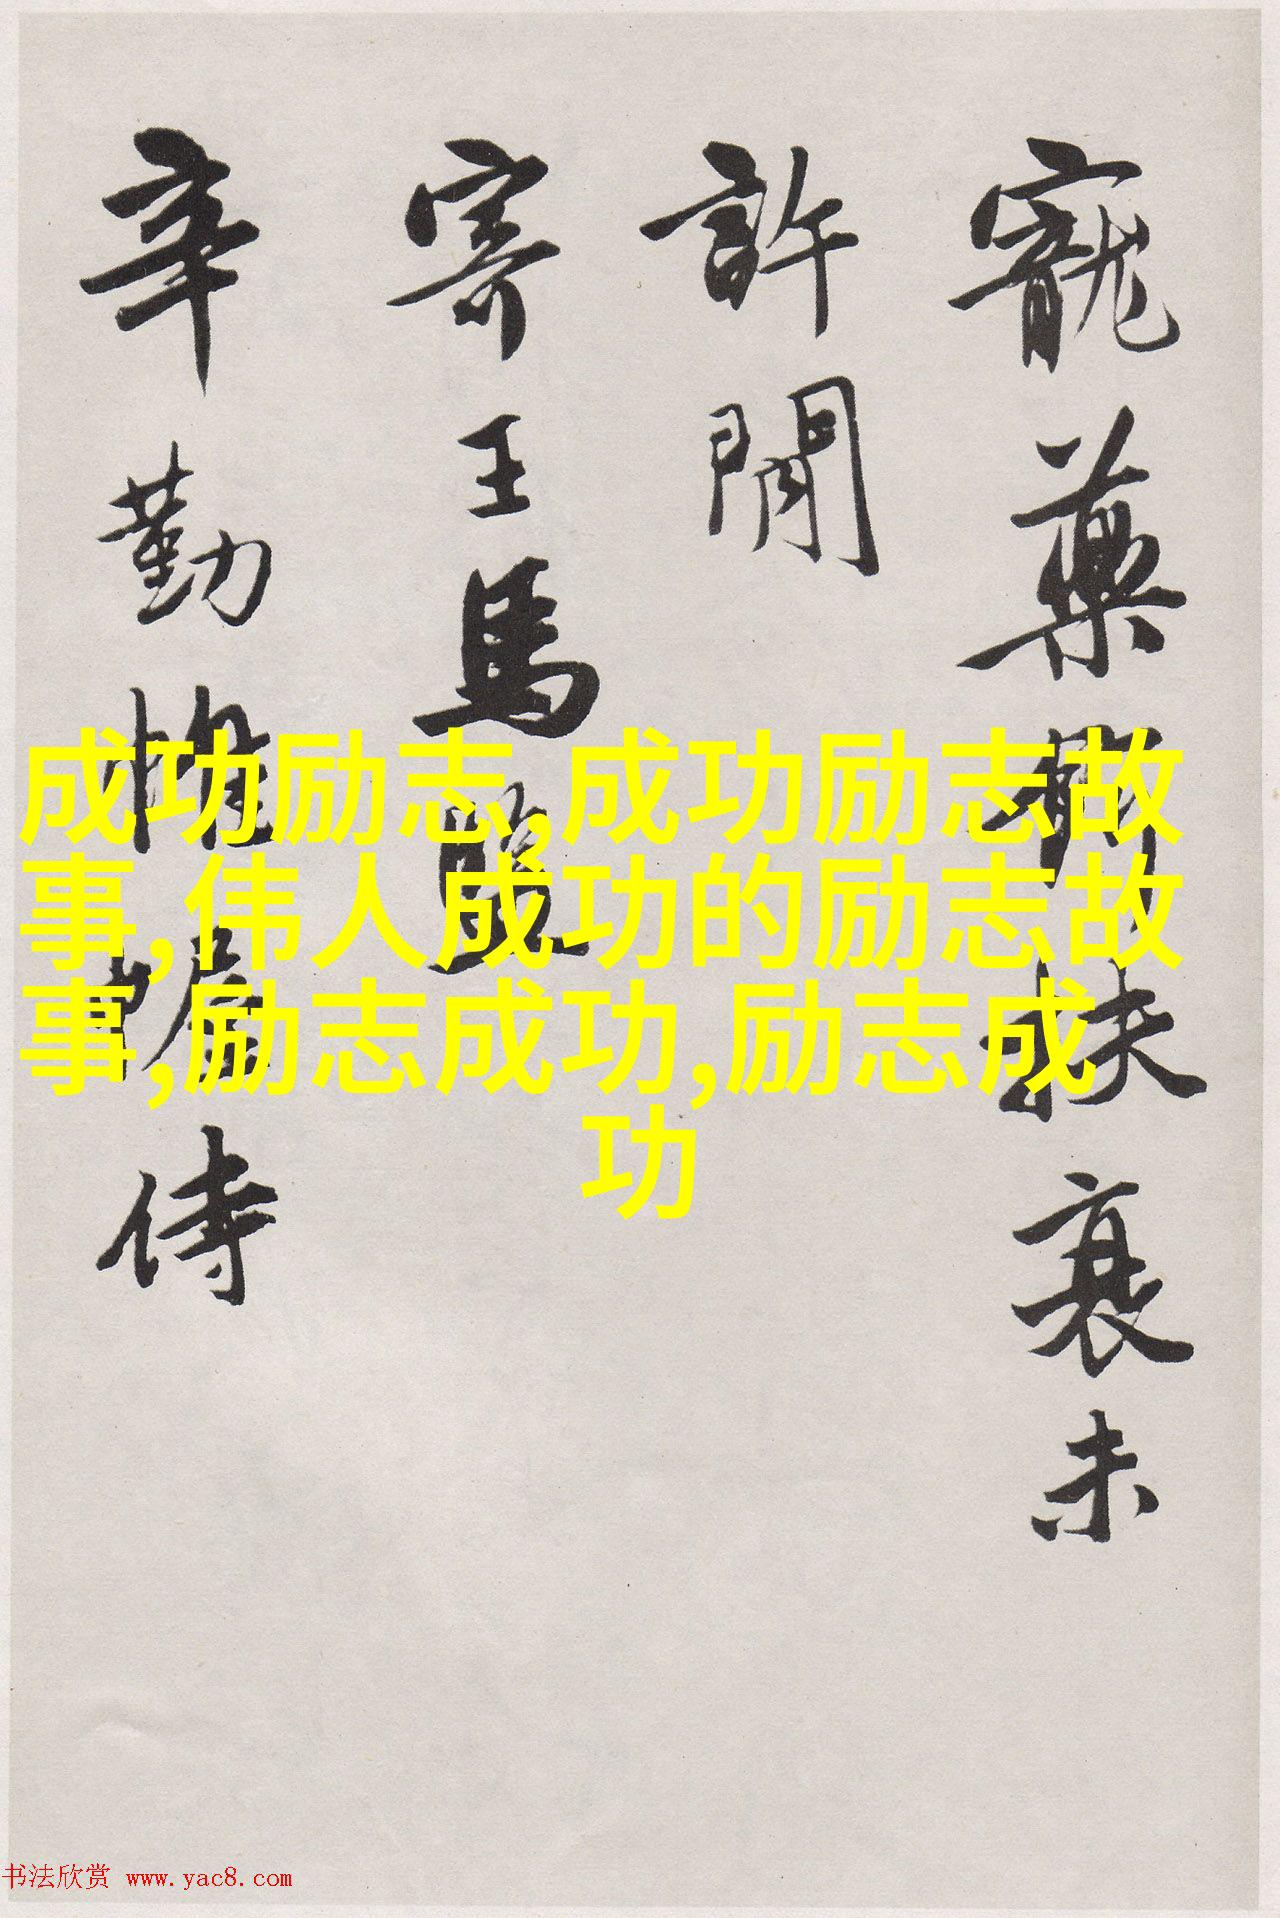 寵藥聊扶衰未
許閒
寄王馬
辛勤帷幄侍
成功励志,成功励志故
事,伟人成功的励志故
事,励志成功,励志成
功
书法欣赏 www.yac8.com